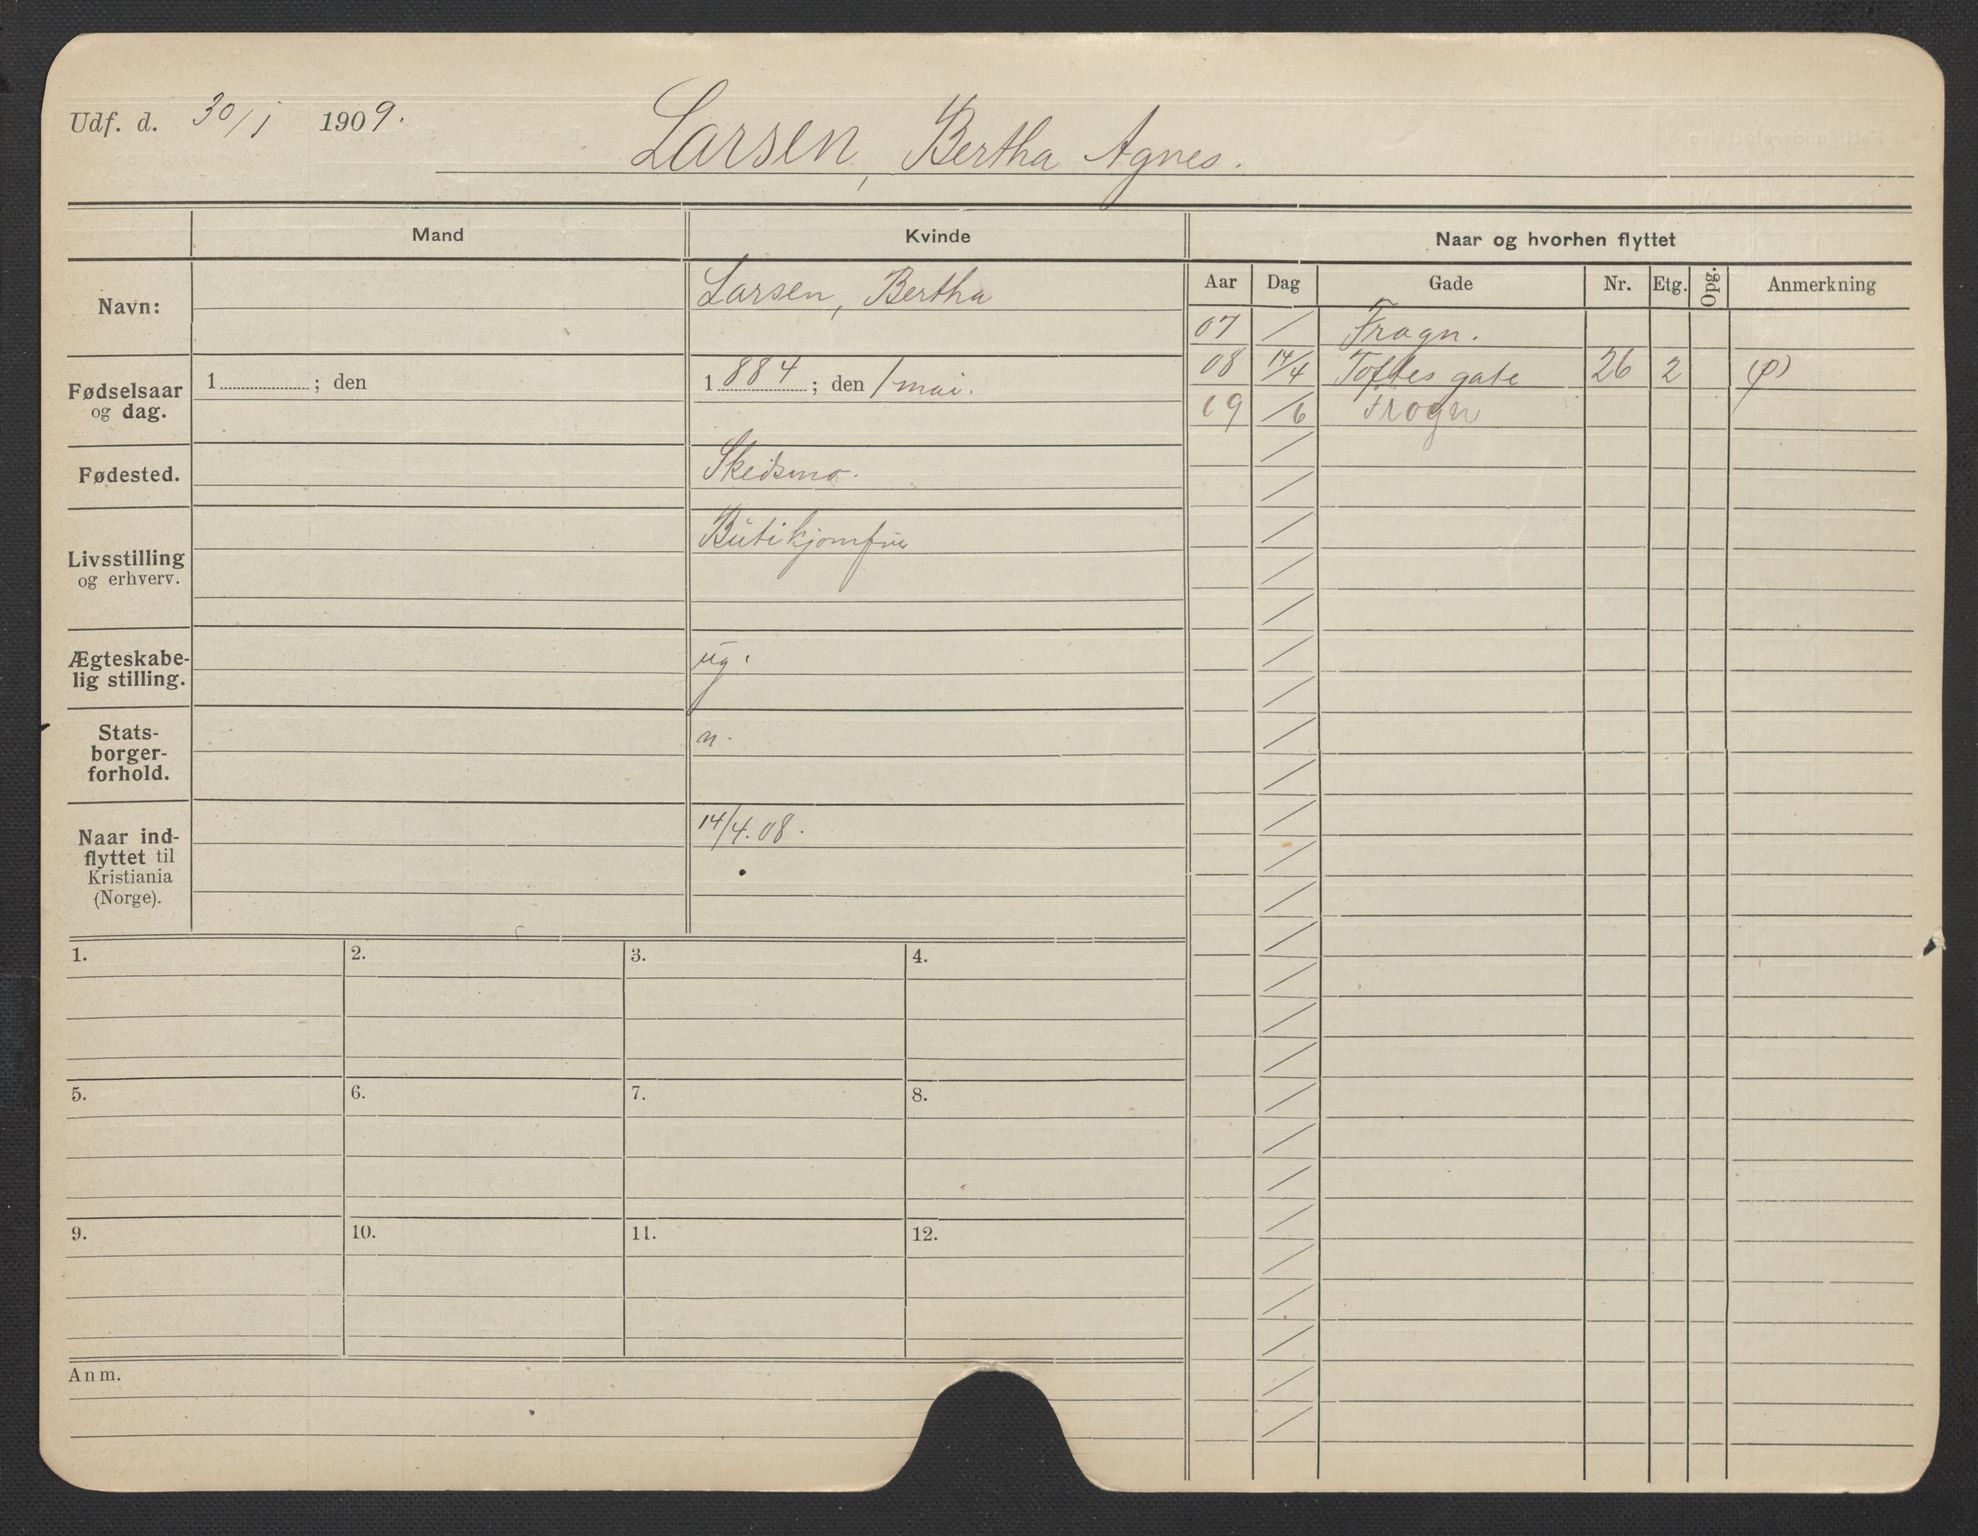 Udf. d. 30/1 1909.
Larsen, Bertha Agnes.
Mand
Kvinde
Naar og hvorhen flyttet
Navn:
Larsen, Bertha
Fødselsaar og dag.
1 ; den
1884 ; den 1 mai.
Fødested.
Skedsmo.
Livsstilling og erhverv.
Butikjomfru
Ægteskabe-
lig stilling.
ug.
Stats-
borger-
forhold.
n.
Naar ind-
flyttet til
Kristiania
(Norge).
14/4.08.
Aar Dag Gade Nr. Etg. Opg. Anmerkning
07 / Frogn.
08 14/4 Toftes gate 26 2
09 /6 Frogn
1. 2. 3. 4.
5. 6. 7. 8.
9. 10. 11. 12.
Anm.